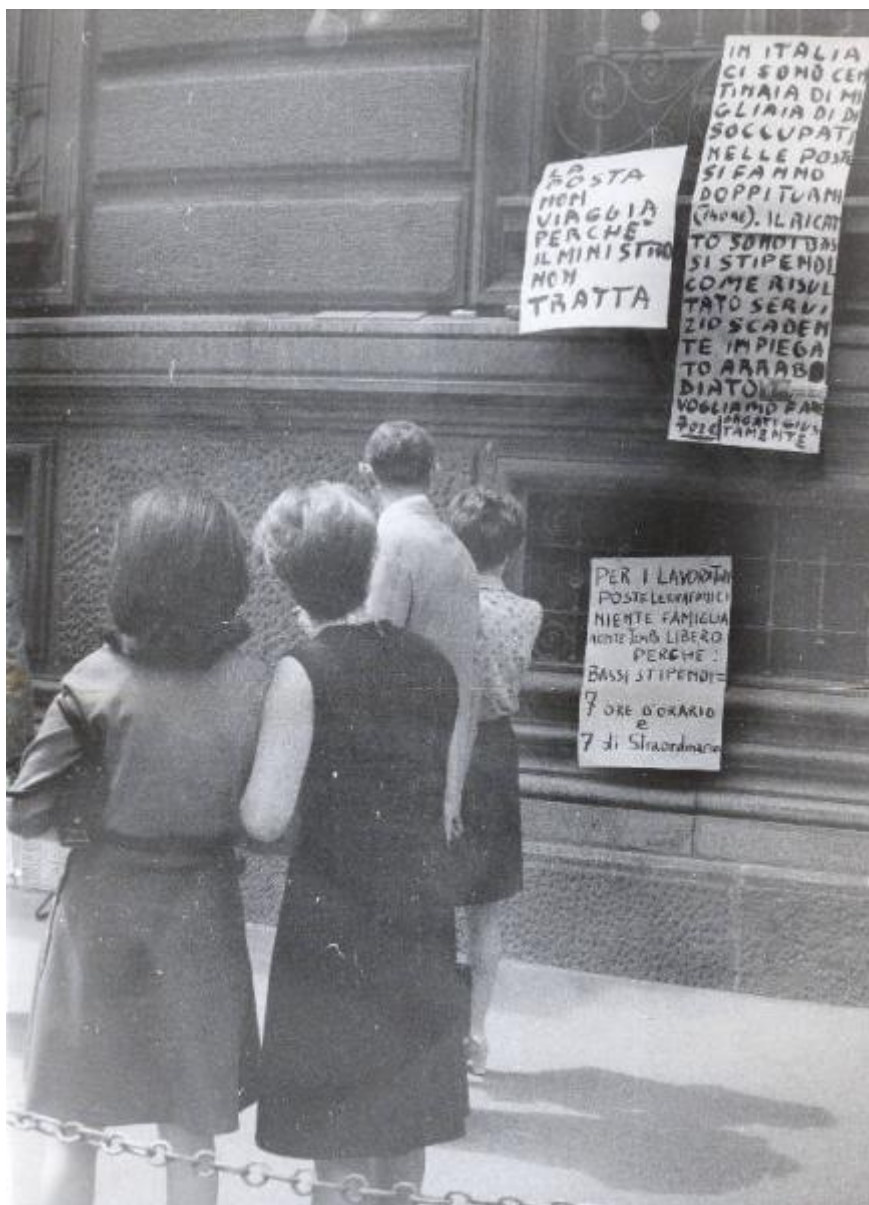 LA
POSTA
NON
VIAGGIA
PERCHE'
IL MINISTRO
NON
TRATTA
IN ITALIA
CI SONO CEN
TINAIA DI MI
GLIAIA DI DI
SOCCUPATI
NELLE POSTE
SI FANNO
DOPPI TURNI
IL RICAT
TO SONO I BAS
SI STIPENDI
COME RISUL
TATO SERVI
ZIO SCADEN
TE IMPIEGA
TO ARRAB
DIATO
VOGLIAMO FARE
7 ORE PAGATI GIUS
TAMENTE
PER I LAVORATORI
POSTELEGRAFONICI
NIENTE FAMIGLIA
NIENTE TEMPO LIBERO
PERCHE!
BASSI STIPENDI=
7 ORE D'ORARIO
e
7 di Straordinario